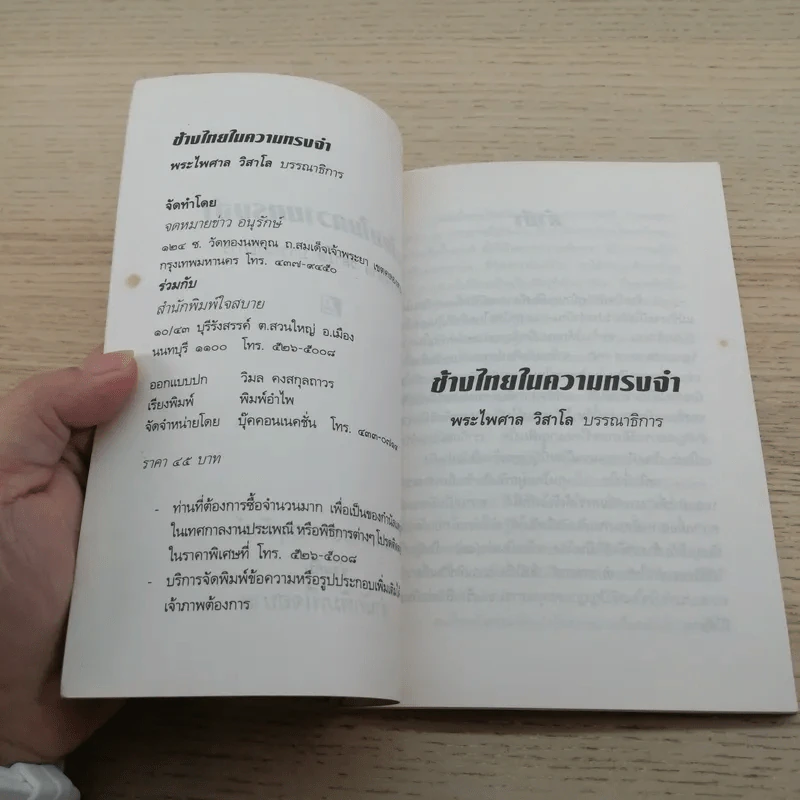 ช้างไทยในความทรงจำ
พระไพศาล วิสาโล บรรณาธิการ
จัดทำโดย
จดหมายข่าว อนุรักษ์
๑๒๔ ซ. วัดทองนพคุณ ถ.สมเด็จเจ้าพระยา
กรุงเทพมหานคร โทร. ๔๓๗-๙๔๕๐
ร่วมกับ
สำนักพิมพ์ใจสบาย
๑๐/๔๓ บุรีรังสรรค์ ต.สวนใหญ่ อ.เมือง
นนทบุรี ๑๑๐๐ โทร. ๕๒๖-๕๐๐๘
ออกแบบปก วิมล คงสกุลถาวร
เรียงพิมพ์ พิมพ์อำไพ
จัดจำหน่ายโดย บุ๊คคอนเนคชั่น โทร.
ราคา ๔๕ บาท
- ท่านที่ต้องการซื้อจำนวนมาก เพื่อเป็นของกำนัล
ในเทศกาลงานประเพณี หรือพิธีการต่างๆ
ในราคาพิเศษที่ โทร. ๕๒๖-๕๐๐๘
- บริการจัดพิมพ์ข้อความหรือรูปประกอบเพิ่มเติม
เจ้าภาพต้องการ
ช้างไทยในความทรงจำ
พระไพศาล วิสาโล บรรณาธิการ